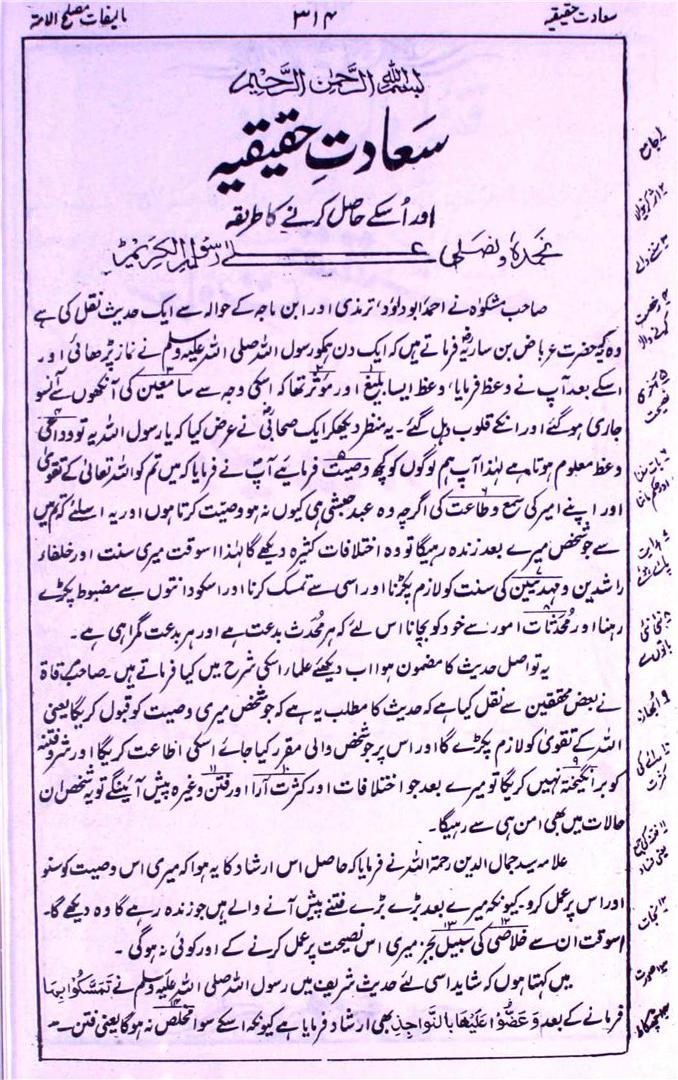 سعادت حقیقیہ
۳۱۴
تالیفات مصلح الامۃ
بسم اللہ الرحمن الرحیم
سعادتِ حقیقیہ
اور اُسکے حاصل کرنے کا طریقہ
نحمدہٗ ونصلی علیٰ رسولہ الکریم
صاحب مشکوٰۃ نے احمد، ابوداؤد، ترمذی اور ابن ماجہ کے حوالہ سے ایک حدیث نقل کی ہے
وہ یہ کہ حضرت عرباض بن ساریہؓ فرماتے ہیں کہ ایک دن ہمکو رسول اللہ صلی اللہ علیہ وسلم نے نماز پڑھائی اور
اسکے بعد آپ نے وعظ فرمایا، وعظ ایسا بلیغ۱ اور مؤثر۲ تھا کہ اسکی وجہ سے سامعین۳ کی آنکھوں سے آنسو
جاری ہوگئے اور انکے قلوب دہل گئے۔ یہ منظر دیکھکر ایک صحابیؓ نے عرض کیا کہ یا رسول اللہ یہ تو وداعی۴
وعظ معلوم ہوتا ہے لہٰذا آپ ہم لوگوں کو کچھ وصیت۵ فرمایئے آپ نے فرمایا کہ میں تم کو اللہ تعالیٰ کے تقویٰ
اور اپنے امیر کی سمع وطاعت۶ کی اگرچہ وہ عبد حبشی ہی کیوں نہ ہو وصیت کرتا ہوں اور یہ اسلئے کہ تم میں
سے جو شخص میرے بعد زندہ رہیگا تو وہ اختلافات کثیرہ دیکھے گا لہٰذا اسوقت میری سنت اور خلفاء
راشدین ومہدیین۷ کی سنت کو لازم پکڑنا اور اسی سے تمسک کرنا اور اسکو دانتوں سے مضبوط پکڑے
رہنا اور محدثات۸ امور سے خود کو بچانا اس لئے کہ ہر محدَث بدعت ہے اور ہر بدعت گمراہی ہے۔
یہ تو اصل حدیث کا مضمون ہوا اب دیکھئے علماء اسکی شرح میں کیا فرماتے ہیں۔ صاحب مرقاۃ
نے بعض محققین سے نقل کیا ہے کہ حدیث کا مطلب یہ ہے کہ جو شخص میری وصیت کو قبول کریگا یعنی
اللہ کے تقویٰ کو لازم پکڑے گا اور اس پر جو شخص والی مقرر کیا جائے اسکی اطاعت کریگا اور شر وفتنہ
کو برانگیختہ۹ نہیں کریگا تو میرے بعد جو اختلافات اور کثرت آرا۱۰ اور فتن۱۱ وغیرہ پیش آئینگے تو یہ شخص ان
حالات میں بھی امن ہی سے رہیگا۔
علامہ سید جمال الدین رحمۃ اللہ نے فرمایا کہ حاصل اس ارشاد کا یہ ہوا کہ میری اس وصیت کو سنو
اور اس پر عمل کرو۔ کیونکہ میرے بعد بڑے بڑے فتنے پیش آنے والے ہیں جو زندہ رہے گا وہ دیکھے گا۔
اسوقت ان سے خلاصی۱۲ کی سبیل۱۳ بجز میری اس نصیحت پر عمل کرنے کے اور کوئی نہ ہوگی۔
میں کہتا ہوں کہ شاید اسی لئے حدیث شریف میں رسول اللہ صلی اللہ علیہ وسلم نے تَمَسَّكُوا بِهَا
فرمانے کے بعد وَعَضُّوا عَلَيْهَا بِالنَّوَاجِذِ بھی ارشاد فرمایا ہے کیونکہ اسکے سوا مخلص۱۴ نہ ہوگا یعنی فتن
۱ جامع
۲ اثر کرنیوالا
۳ سننے والے
۴ رخصت
کرنے والا
۵ آخری
نصیحت
۶ بات سننا
اور حکم ماننا
۷ ہدایت
پائے ہوئے
۸ نئی نئی
باتوں سے
۹ ابھارنا
۱۰ رائے کی
کثرت
۱۱ فتنہ کی جمع
یعنی فساد
۱۲ نجات
۱۳ صورت
۱۴ چھٹکارا